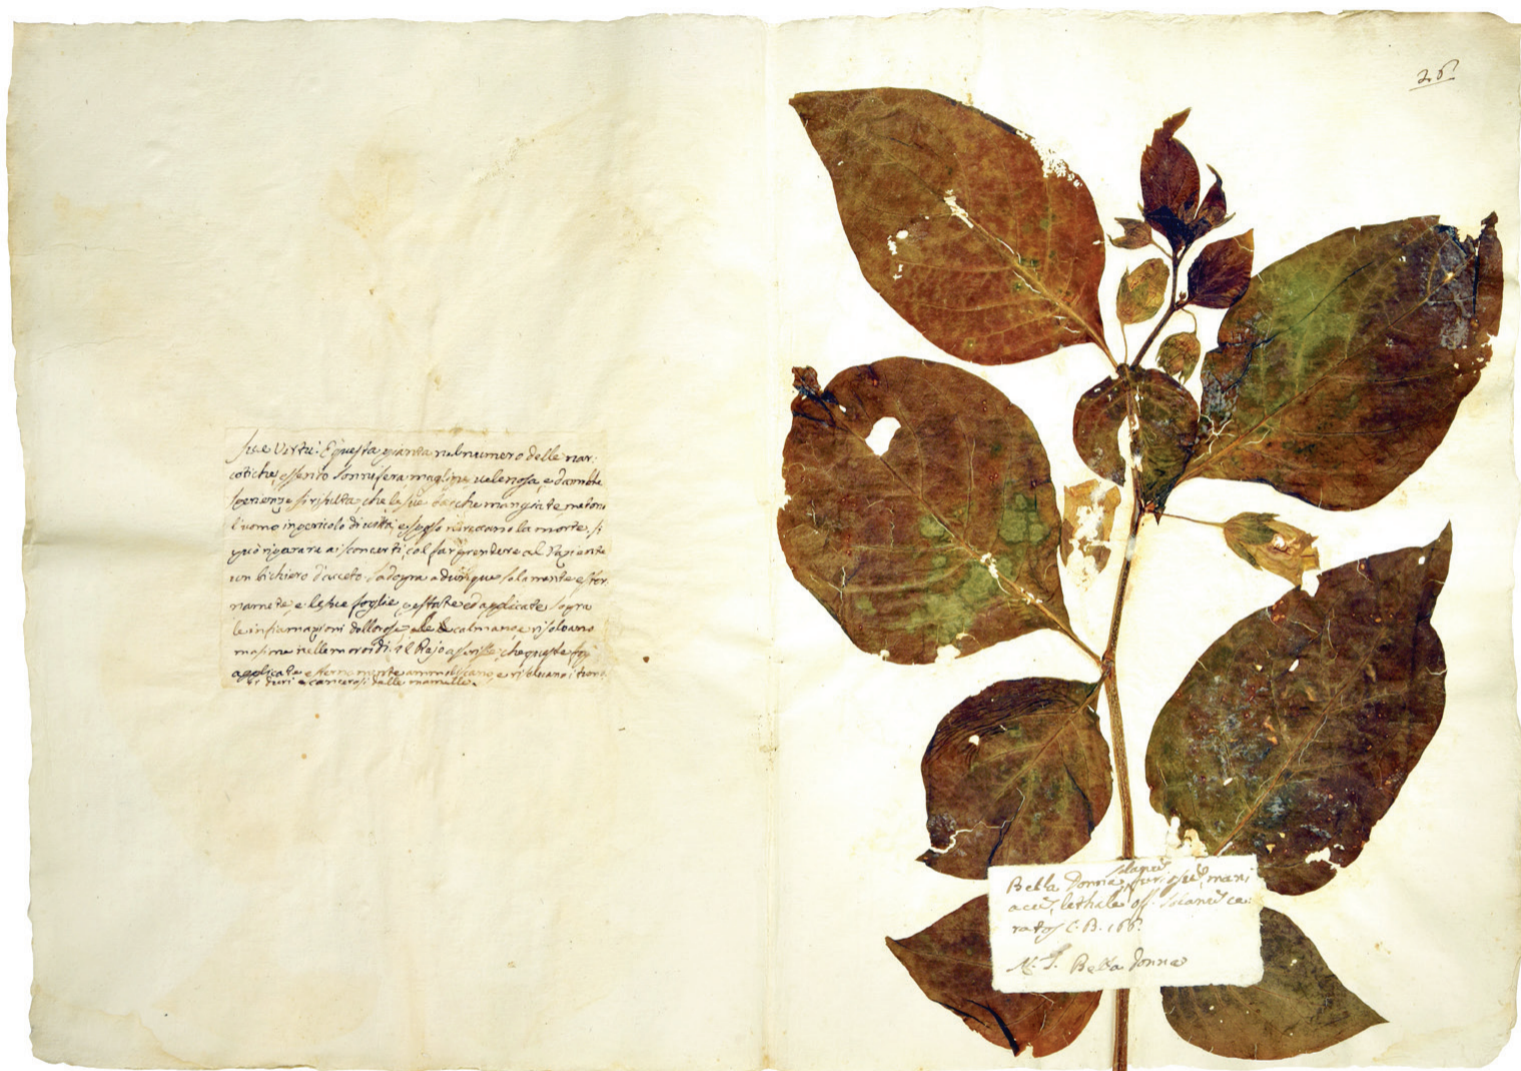 Sue Virtù. È questa pianta nel numero delle nar:
cotiche, essendo sonnifera velenosa, e da molte
sperienze si risulta, che le sue bacche mangiate mettono
l'uomo in pericolo di vita, e spesso la morte, si
può riparare ai sconcerti col far prendere al Paziente
un bichiero d'aceto. S'adopra adunque solamente ester:
namente, e le sue foglie pestate ed applicate sopra
le infiamazioni dolorose, le calmano, e risolvono
masime nelle moroidi. il Rajo che queste
applicate esternamente ammolliscano, e risolvano i tumo:
ri duri e cancerosi delle mamelle.
26
Bella Donna, solanũ furiosũ, mani
acũ, lethale off. Solanũ ce:
ratoſ C.B. 166.
N. I. Bella donna